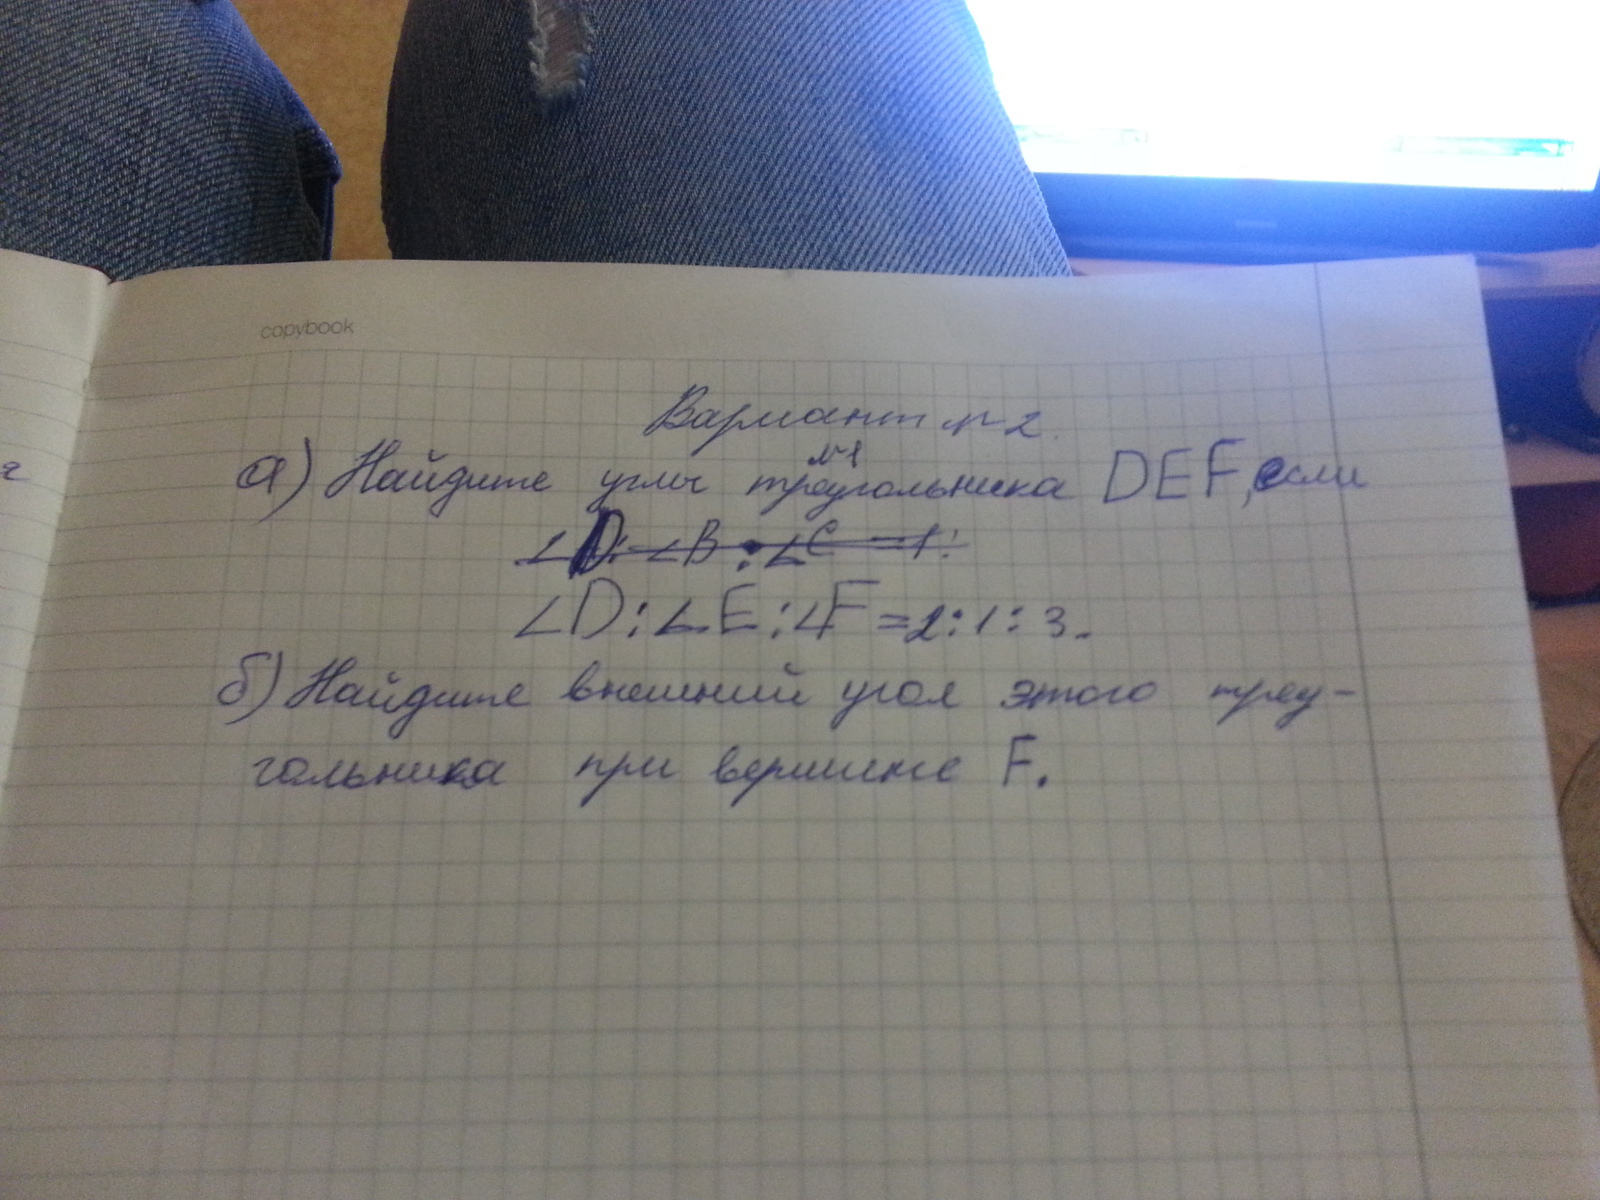 copybook
Вариант №2.
№1
а) Найдите углы треугольника DEF, если
∠D: ∠B : ∠C = 1:
∠D:∠E:∠F=2:1:3.
б) Найдите внешний угол этого треу-
гольника при вершине F.